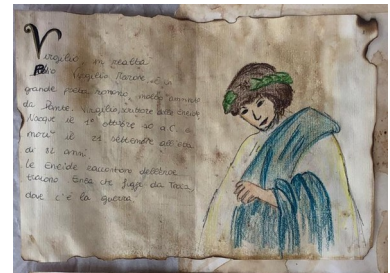 Virgilio, in realtà
Publio Virgilio Marone è un
grande poeta romano, molto ammirato
da Dante. Virgilio, scrittore dell'eneide
Nacque il 1° ottobre 70 a.C. e
morì il 21 settembre all'età
di 51 anni.
Le Eneide raccontano dell'eroe
troiano Enea che fugge da Troia,
dove c'è la guerra